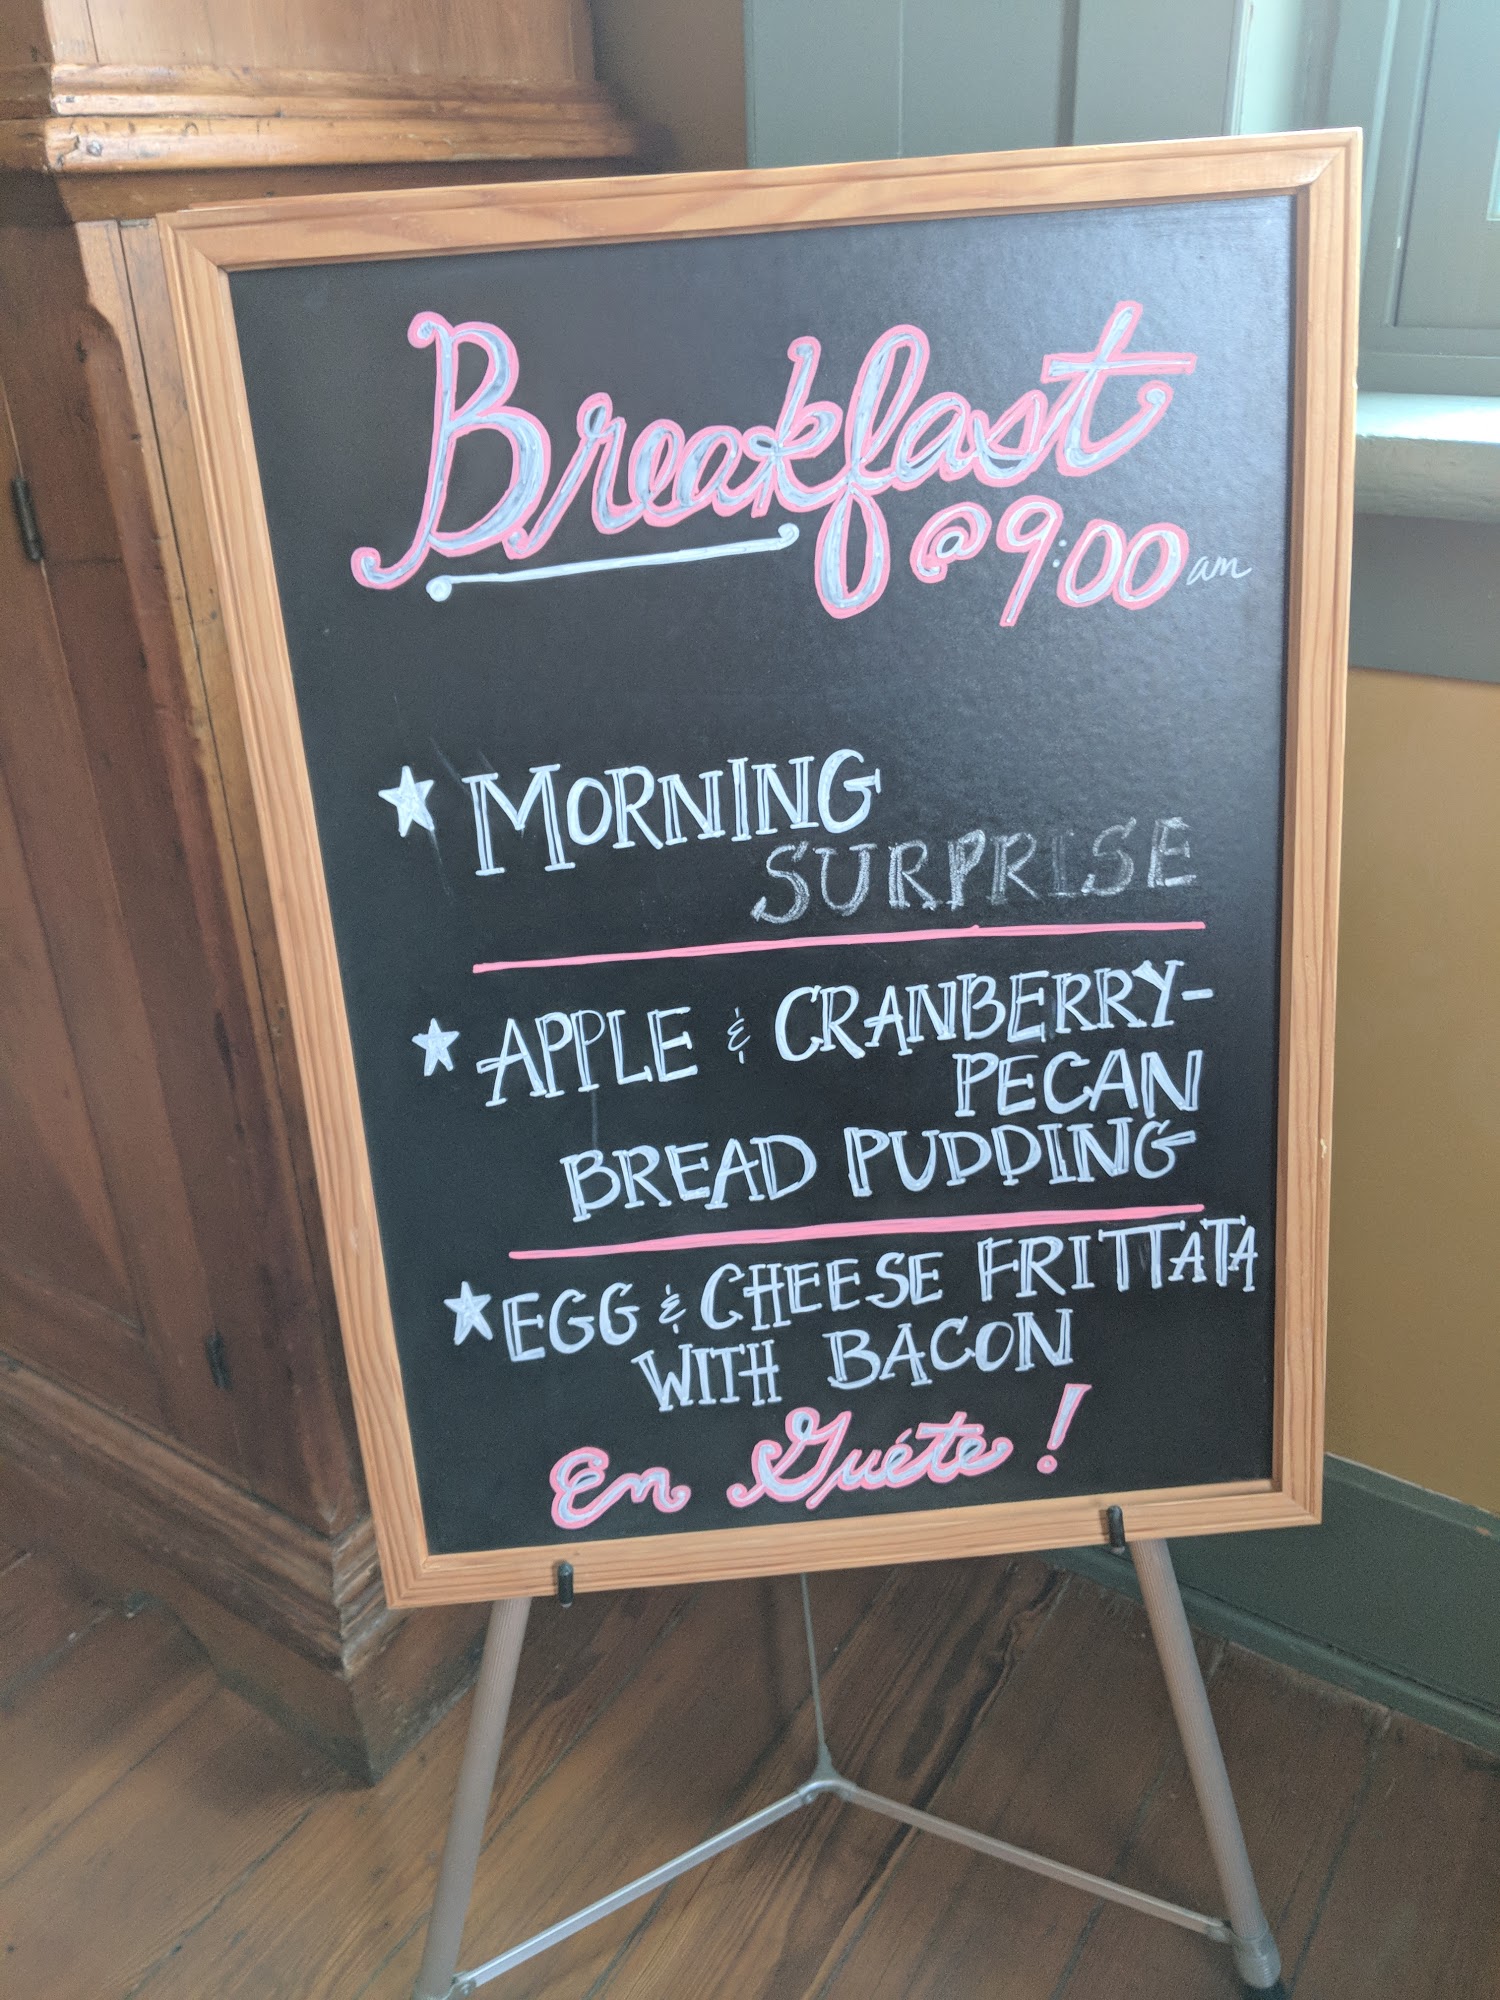 Breakfast
@ 9:00 am
★ MORNING
SURPRISE
★ APPLE & CRANBERRY-
PECAN
BREAD PUDDING
★ EGG & CHEESE FRITTATA
WITH BACON
En Guéte!